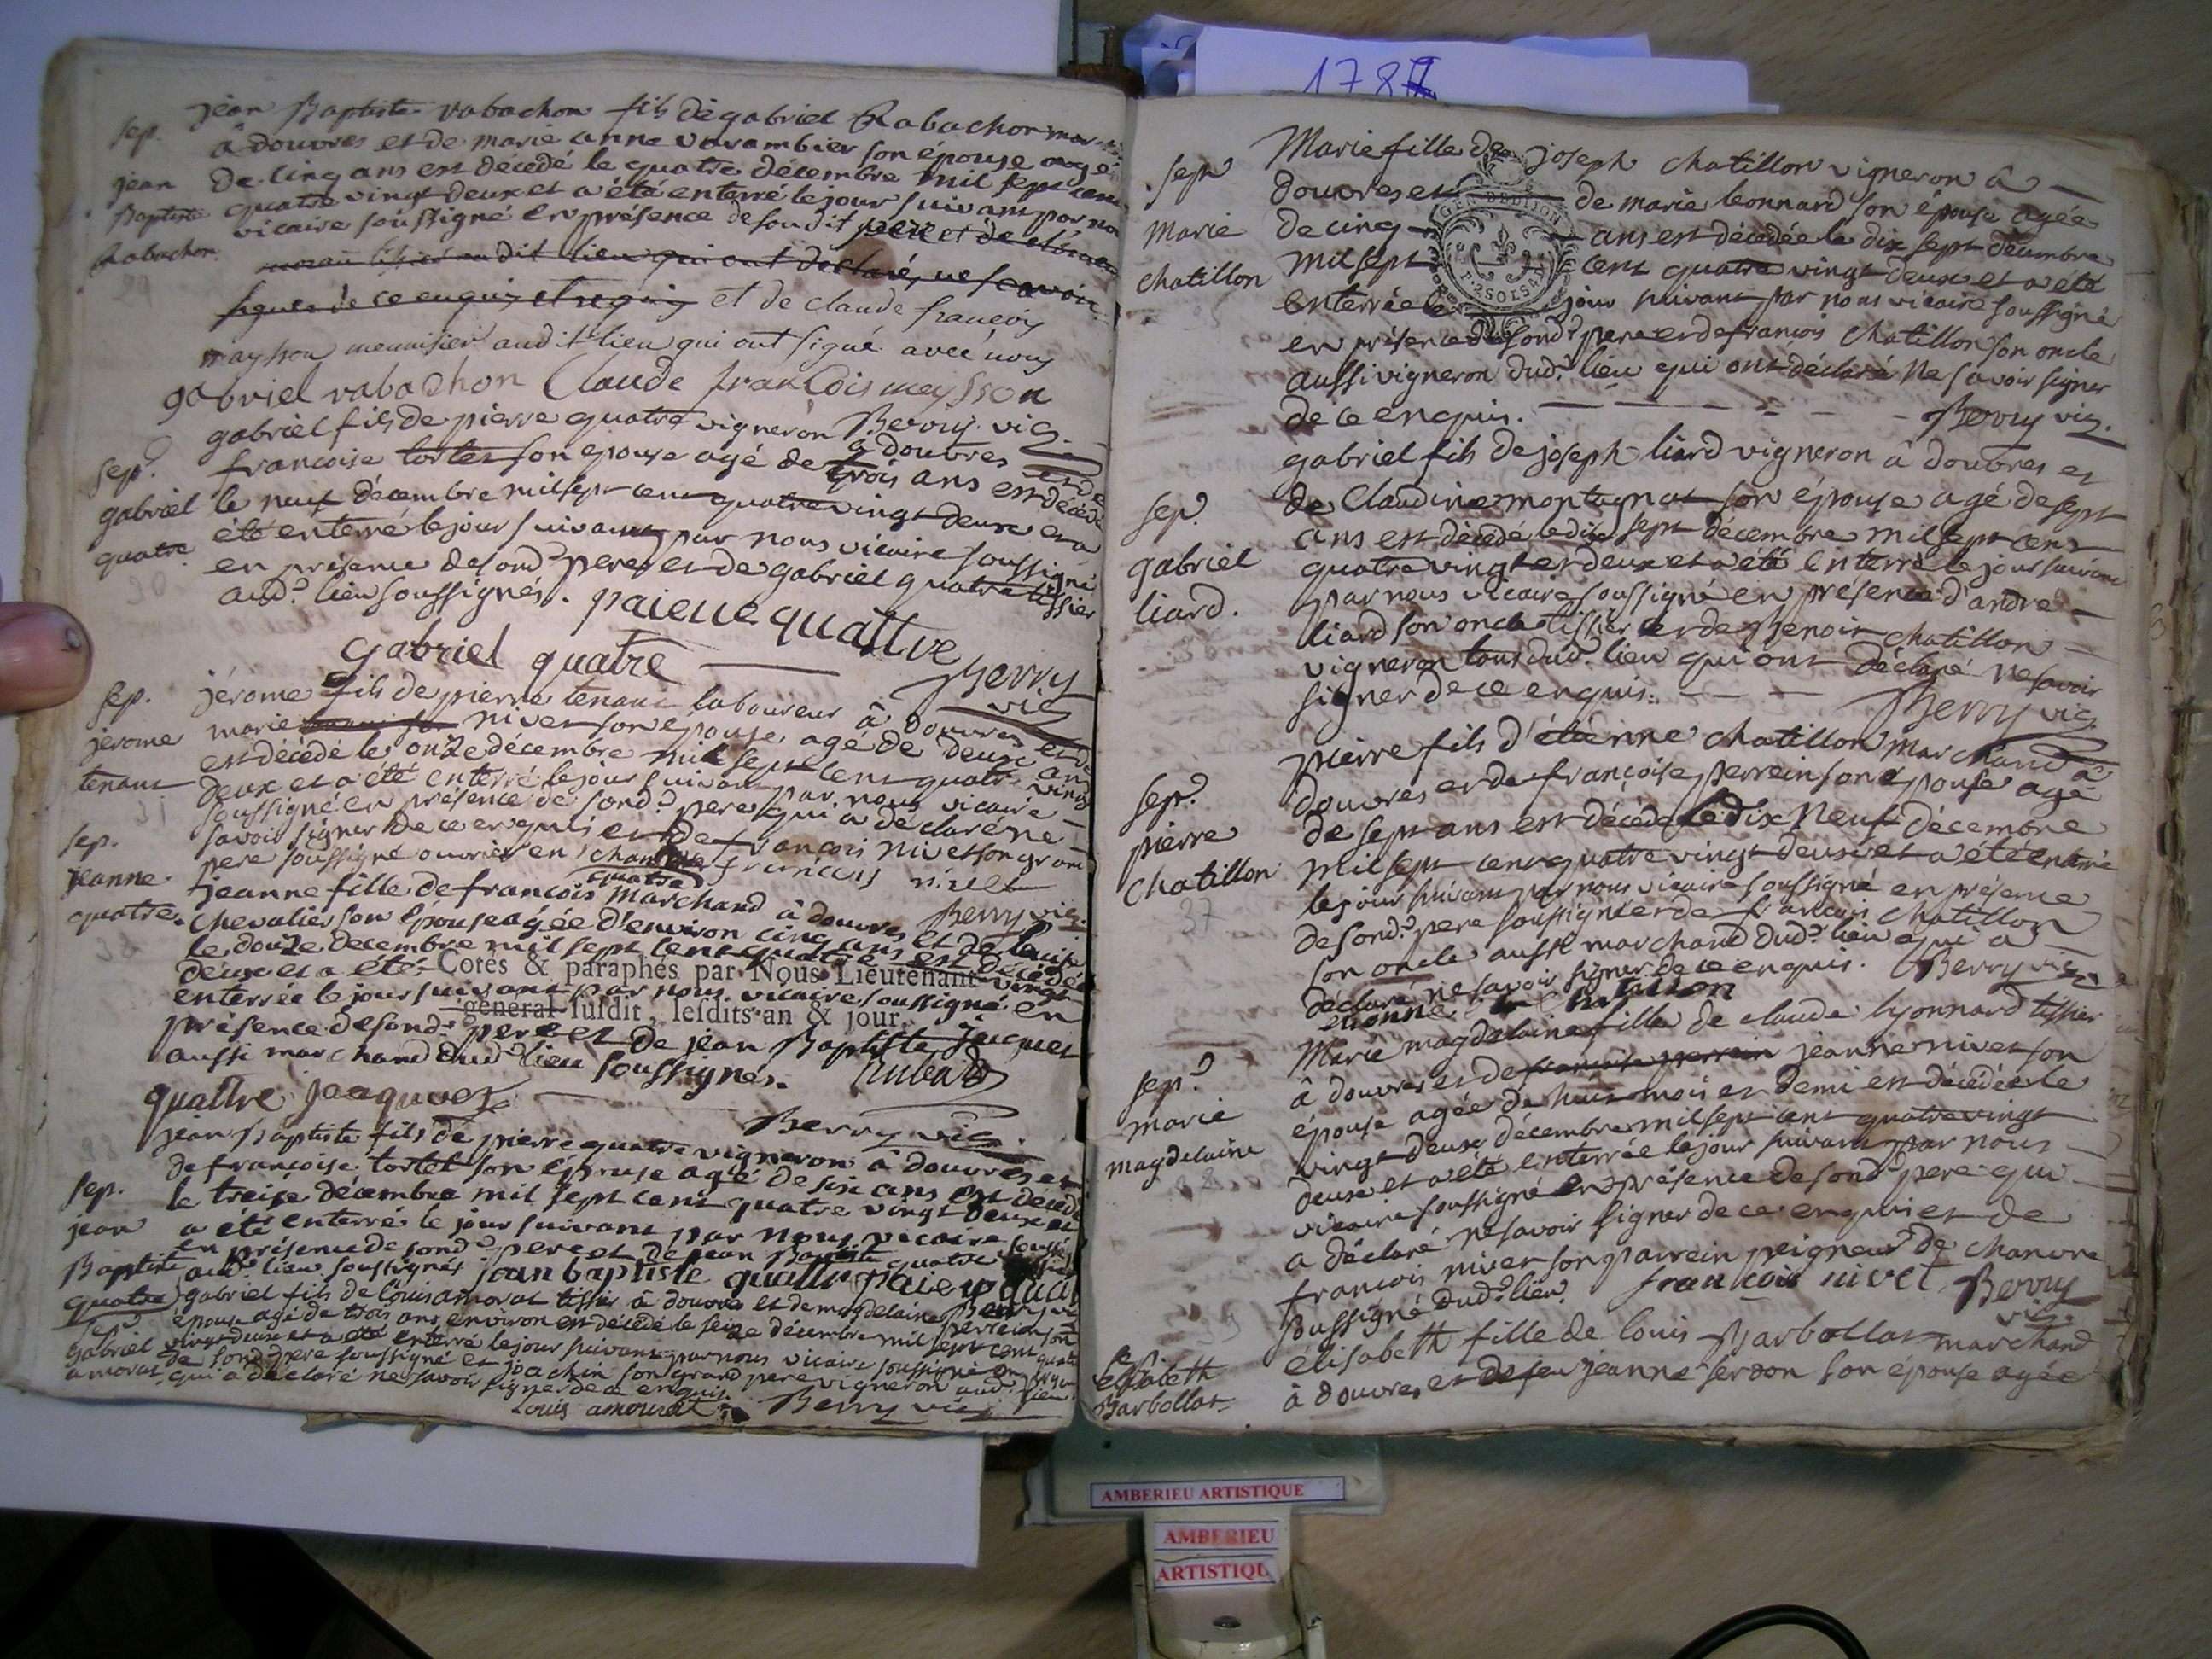 1787
sep.
jean
Baptiste
Rabachon
jean Baptiste rabachon fils de gabriel Rabachon mar
à douvres et de marie anne varambier son épouse agé
de cinq ans est décédé le quatre décembre mil sept cent
quatre vingt deux et a été enterré le jour suivant par nous
vicaire soussigné en présence de son dit pere et de
audit lieu qui ont declaré ne scavoir
signer de ce enquis et requis et de claude françois
maysson menuisier audit lieu qui ont signé avec nous
gabriel rabachon Claude francois meysson
Berry vic.
sep.
gabriel
quatre
gabriel fils de pierre quatre vigneron à douvres et de
francoise tortel son epouse agé de trois ans est décédé
le neuf décembre mil sept cent quatre vingt deux et a
été enterré le jour suivant par nous vicaire soussigné
en présence de sond. pere et de gabriel quatre tissier
aud. lieu soussignés. paieue quattre
gabriel quatre Berry
vic
sep.
jerome
tenant
jérome fils de pierre tenant laboureur à douvres et de
marie nivet son épouse, agé de deux ans
est décédé le onze décembre mil sept cent quatre vingt
deux et a été enterré le jour suivant par nous vicaire
soussigné en présence de sond. pere qui a déclaré ne
savoir signer de ce enquis et de francois nivet son grand
pere soussigné ouvrier en chanvre francois nivet
Berry vic.
sep.
jeanne
quatre
jeanne fille de francois quatre marchand à douvres et de louise
chevalier son épouse agée d'environ cinq ans est décédée
le douze decembre mil sept cent quatre vingt
deux et a été Cotés & paraphés par Nous Lieutenant
enterrée le jour suivant par nous vicaire soussigné en
général susdit, lesdits an & jour.
présence de sond. pere et de jean Baptiste jacquet
aussi marchand dud. lieu soussignés.
quattre jacquvet
Berry vic.
sep.
jean
Baptiste
quatre
jean Baptiste fils de pierre quatre vigneron à douvres et
de francoise tortel son épouse agé de six ans est décédé
le treize décembre mil sept cent quatre vingt deux et
a été enterré le jour suivant par nous vicaire soussigné
en présence de sond. pere et de jean Baptiste quatre
aud. lieu soussignés jean baptiste quattre
sep.
gabriel
amorat
gabriel fils de louis amorat tissier à douvres et de magdelaine perrein son
épouse agé de trois ans environ est décédé le seize décembre mil sept cent quatre
vingt deux et a été enterré le jour suivant par nous vicaire soussigné en
de sond. pere soussigné et joachin son grand pere vigneron aud. lieu
qui a déclaré ne savoir signer de ce enquis.
Louis amourat Berry vic
sep.
Marie
chatillon
Marie fille de joseph chatillon vigneron à
douvres et de marie leonnard son épouse agée
de cinq ans est décédée le dix sept décembre
mil sept cent quatre vingt deux et a été
enterrée le jour suivant par nous vicaire soussigné
en présence de sond. pere et de francois chatillon son oncle
aussi vigneron dud. lieu qui ont déclaré ne savoir signer
de ce enquis. Berry vic.
GEN DE DIJON
sep.
gabriel
liard.
gabriel fils de joseph liard vigneron à douvres et
de Claudine montagnat son épouse agé de sept
ans est décédé le dix sept décembre mil sept cent
quatre vingt et deux et a été enterré le jour suivant
par nous vicaire soussigné en présence d'andré
liard son oncle tissier et de Benoit chatillon
vigneron tous dud. lieu qui ont déclaré ne savoir
signer de ce enquis.
Berry vic.
sep.
pierre
chatillon
37
pierre fils d'étienne chatillon marchand à
douvres et de françoise perrein son épouse agé
de sept ans est décédé le dix neuf décembre
mil sept cent quatre vingt deux et a été enterré
le jour suivant par nous vicaire soussigné en présence
de sond. pere soussigné et de francois chatillon
son oncle aussi marchand dud. lieu qui a
déclaré ne savoir signer de ce enquis. Berry vic
chatillon
sep.
marie
magdelaine
Marie magdelaine fille de claude lyonnard tissier
à douvres et de françoise perrein jeanne nivet son
épouse agée de huit mois et demi est décédée le
vingt deux décembre mil sept cent quatre vingt
deux et a été enterrée le jour suivant par nous
vicaire soussigné en présence de sond. pere qui
a déclaré ne savoir signer de ce enquis et de
francois nivet son parrein peigneur de chanvre
soussigné dud. lieu. francois nivet Berry
vic.
sep.
elisabeth
Barbollat
élisabeth fille de louis Barbollat marchand
à douvres et de feu jeanne serdon son épouse agée
AMBERIEU ARTISTIQUE
AMBERIEU
ARTISTIQU